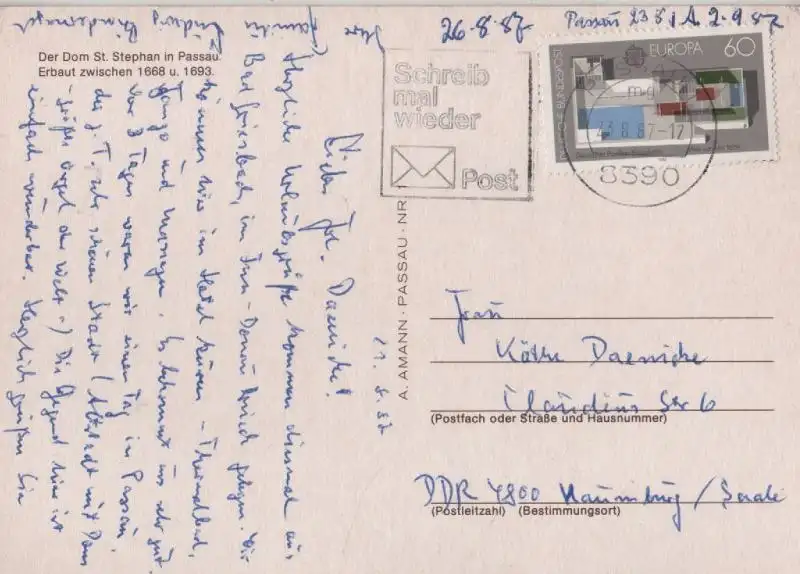 26.8.87 Passau 23.8. A. 2.9.87
Der Dom St. Stephan in Passau.
Erbaut zwischen 1668 u. 1693.
Schreib
mal
wieder
Post
DEUTSCHE BUNDESPOST
EUROPA 60
23.8.87-17
8390
A. AMANN · PASSAU · NR
21.8.87
Liebe Fr. Daenicke!
Herzliche Urlaubsgrüße kommen diesmal aus
Bad Griesbach, im Inn-Donau gelegen. Wir
können hier im Hotel kuren - Thermalbad,
Fango und Massagen. Es bekommt uns sehr gut.
Vor 3 Tagen waren wir einen Tag in Passau,
die z. T. sehr schöne Stadt (Altstadt mit Dom
- größte Orgel der Welt -) Die Gegend hier ist
einfach wunderbar. Herzlich grüßen Sie
Ihre Familie Ludwig
Frau
Käthe Daenicke
Claudius Str 6
(Postfach oder Straße und Hausnummer)
DDR 4800 Naumburg/Saale
(Postleitzahl) (Bestimmungsort)